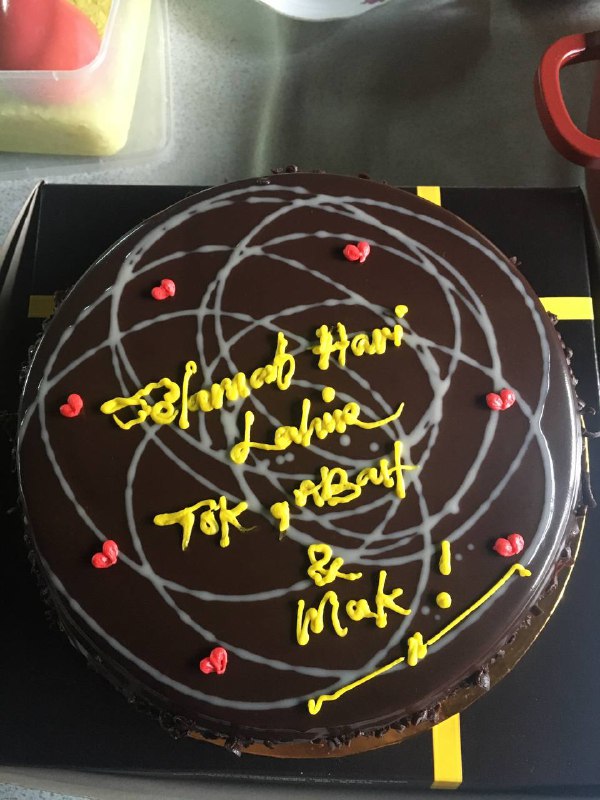 Selamat Hari
Lahir
Tok, Abah
&
Mak!